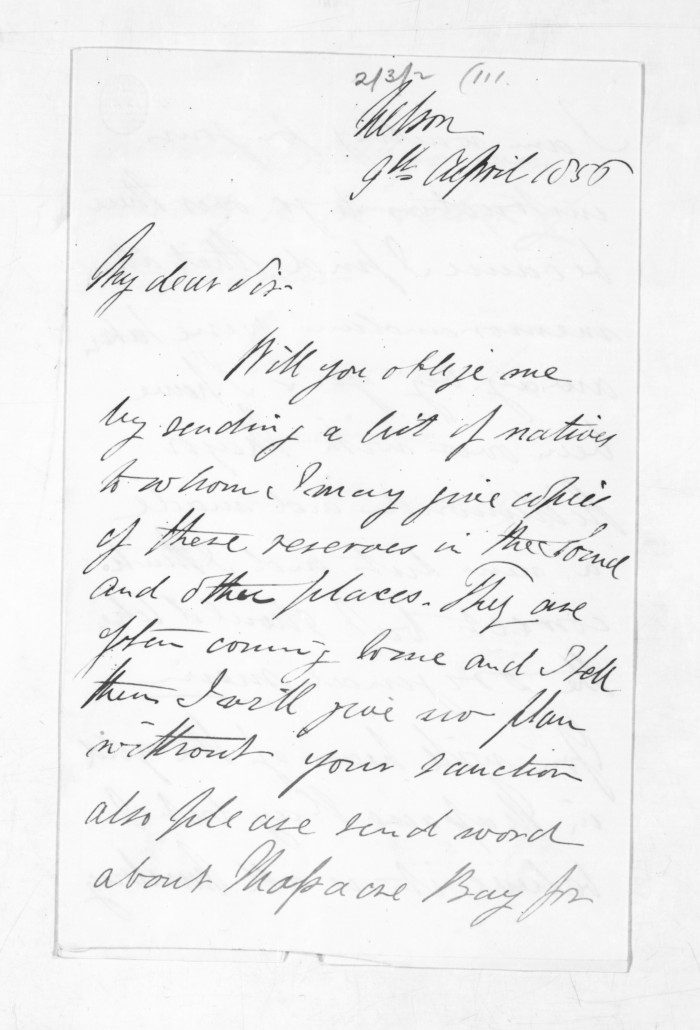 2/3/2 (111.
Nelson
9th April 1856
My dear Sir-
Will you oblige me
by sending a list of natives
to whom I may give copies
of these reserves in the Sound
and other places. They are
often coming to me and I tell
them I will give no plan
without your sanction
also please send word
about Massacre Bay for